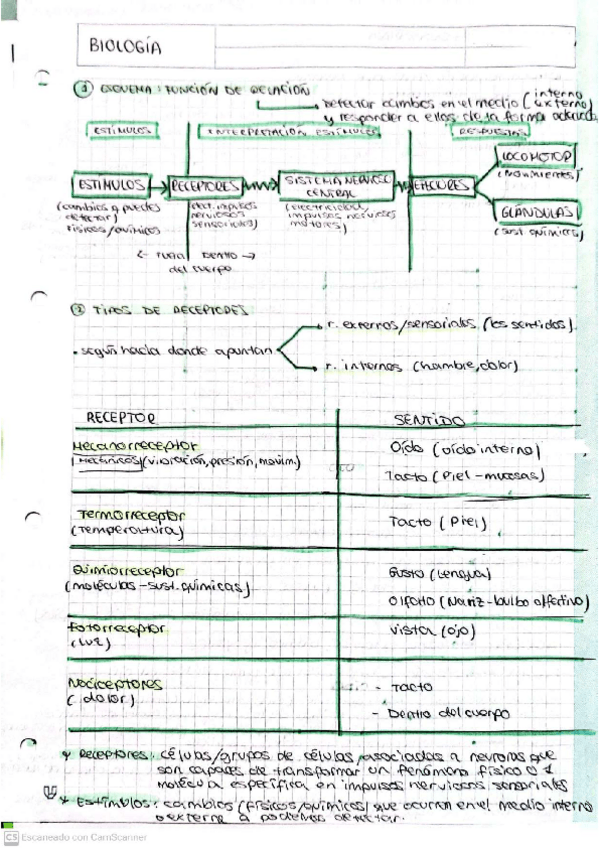 BIOLOGÍA
① ESQUEMA: FUNCIÓN DE RELACIÓN
Detectar cambios en el medio (interno
externo)
y responder a ellos de la forma adecuada
ESTÍMULOS INTERPRETACIÓN ESTÍMULOS RESPUESTAS
ESTÍMULOS RECEPTORES SISTEMA NERVIOSO CENTRAL EFECTORES LOCOMOTOR
(movimientos)
GLÁNDULAS
(sust. químicas)
(cambios q puedes
detectar)
físicos/químicos
impulsos
nerviosos
sensoriales)
(electricidad,
impulsos nerviosos
motores)
<- fuera dentro ->
del cuerpo
② TIPOS DE RECEPTORES
r. externos/sensoriales (los sentidos).
• según hacia donde apuntan
r. internos (hambre, dolor)
RECEPTOR SENTIDO
Mecanorreceptor Oído (oído interno)
Mecánicos (vibración, presión, movim.) Tacto (Piel - mucosas)
Termorreceptor Tacto (Piel)
(Temperatura)
Quimiorreceptor Gusto (Lengua)
(moléculas - sust. químicas) Olfato (Nariz - bulbo olfativo)
Fotorreceptor Vista (ojo)
(Luz)
Nociceptores - Tacto
(dolor) - Dentro del cuerpo
* Receptores: células/grupos de células asociadas a neuronas que
son capaces de transformar un fenómeno físico o 1
molécula específica en impulsos nerviosos sensoriales
* Estímulos: cambios (físicos/químicos) que ocurren en el medio interno
o externo q podemos detectar.
CS Escaneado con CamScanner